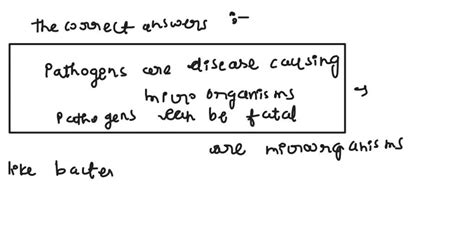 the correct answers :-
Pathogens are disease causing
micro organisms
Pathogens can be fatal
are microorganisms
like bacter